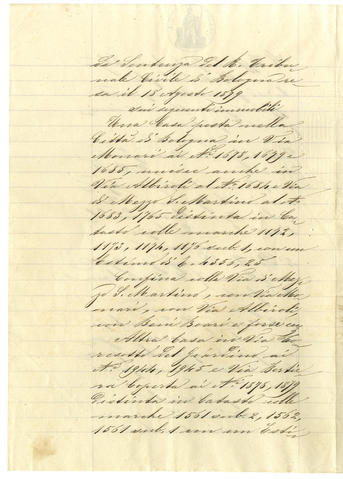 La Sentenza del R. Tribu
nale Civile di Bologna re
sa il 18 Agosto 1879
sui seguenti immobili
Una Casa posta nella
Città di Bologna in Via
Monari ai N. 1678, 1679 e
1685, unisce anche in
Via Albiroli al N. 1684 e Via
di Mezzo S. Martino al N.
1683, 1765 distinta in Ca
tasto colle marche 1172,
1173, 1174, 1175 sub. 1, con un
Estimo di £ 4335,25
Confina colla Via di Mez
zo S. Martino, con Via Mo
nari, con Via Albiroli,
con Beni Boari e forse
Altra Casa in Via
del Giardino ai
N. 1944, 1945 e Via
Coperta ai N. 1878, 1879
Distinta in Catasto colle
marche 1561 sub. 2, 1562,
1561 sub. 1 con un Esti